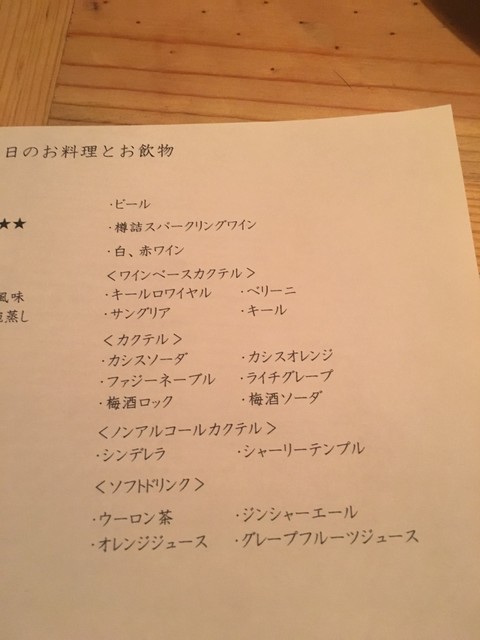 日のお料理とお飲物
・ビール
★★
・樽詰スパークリングワイン
・白、赤ワイン
＜ワインベースカクテル＞
風味
・キールロワイヤル ・ベリーニ
蒸し
・サングリア ・キール
＜カクテル＞
・カシスソーダ ・カシスオレンジ
・ファジーネーブル ・ライチグレープ
・梅酒ロック ・梅酒ソーダ
＜ノンアルコールカクテル＞
・シンデレラ ・シャーリーテンプル
＜ソフトドリンク＞
・ウーロン茶 ・ジンシャーエール
・オレンジジュース ・グレープフルーツジュース